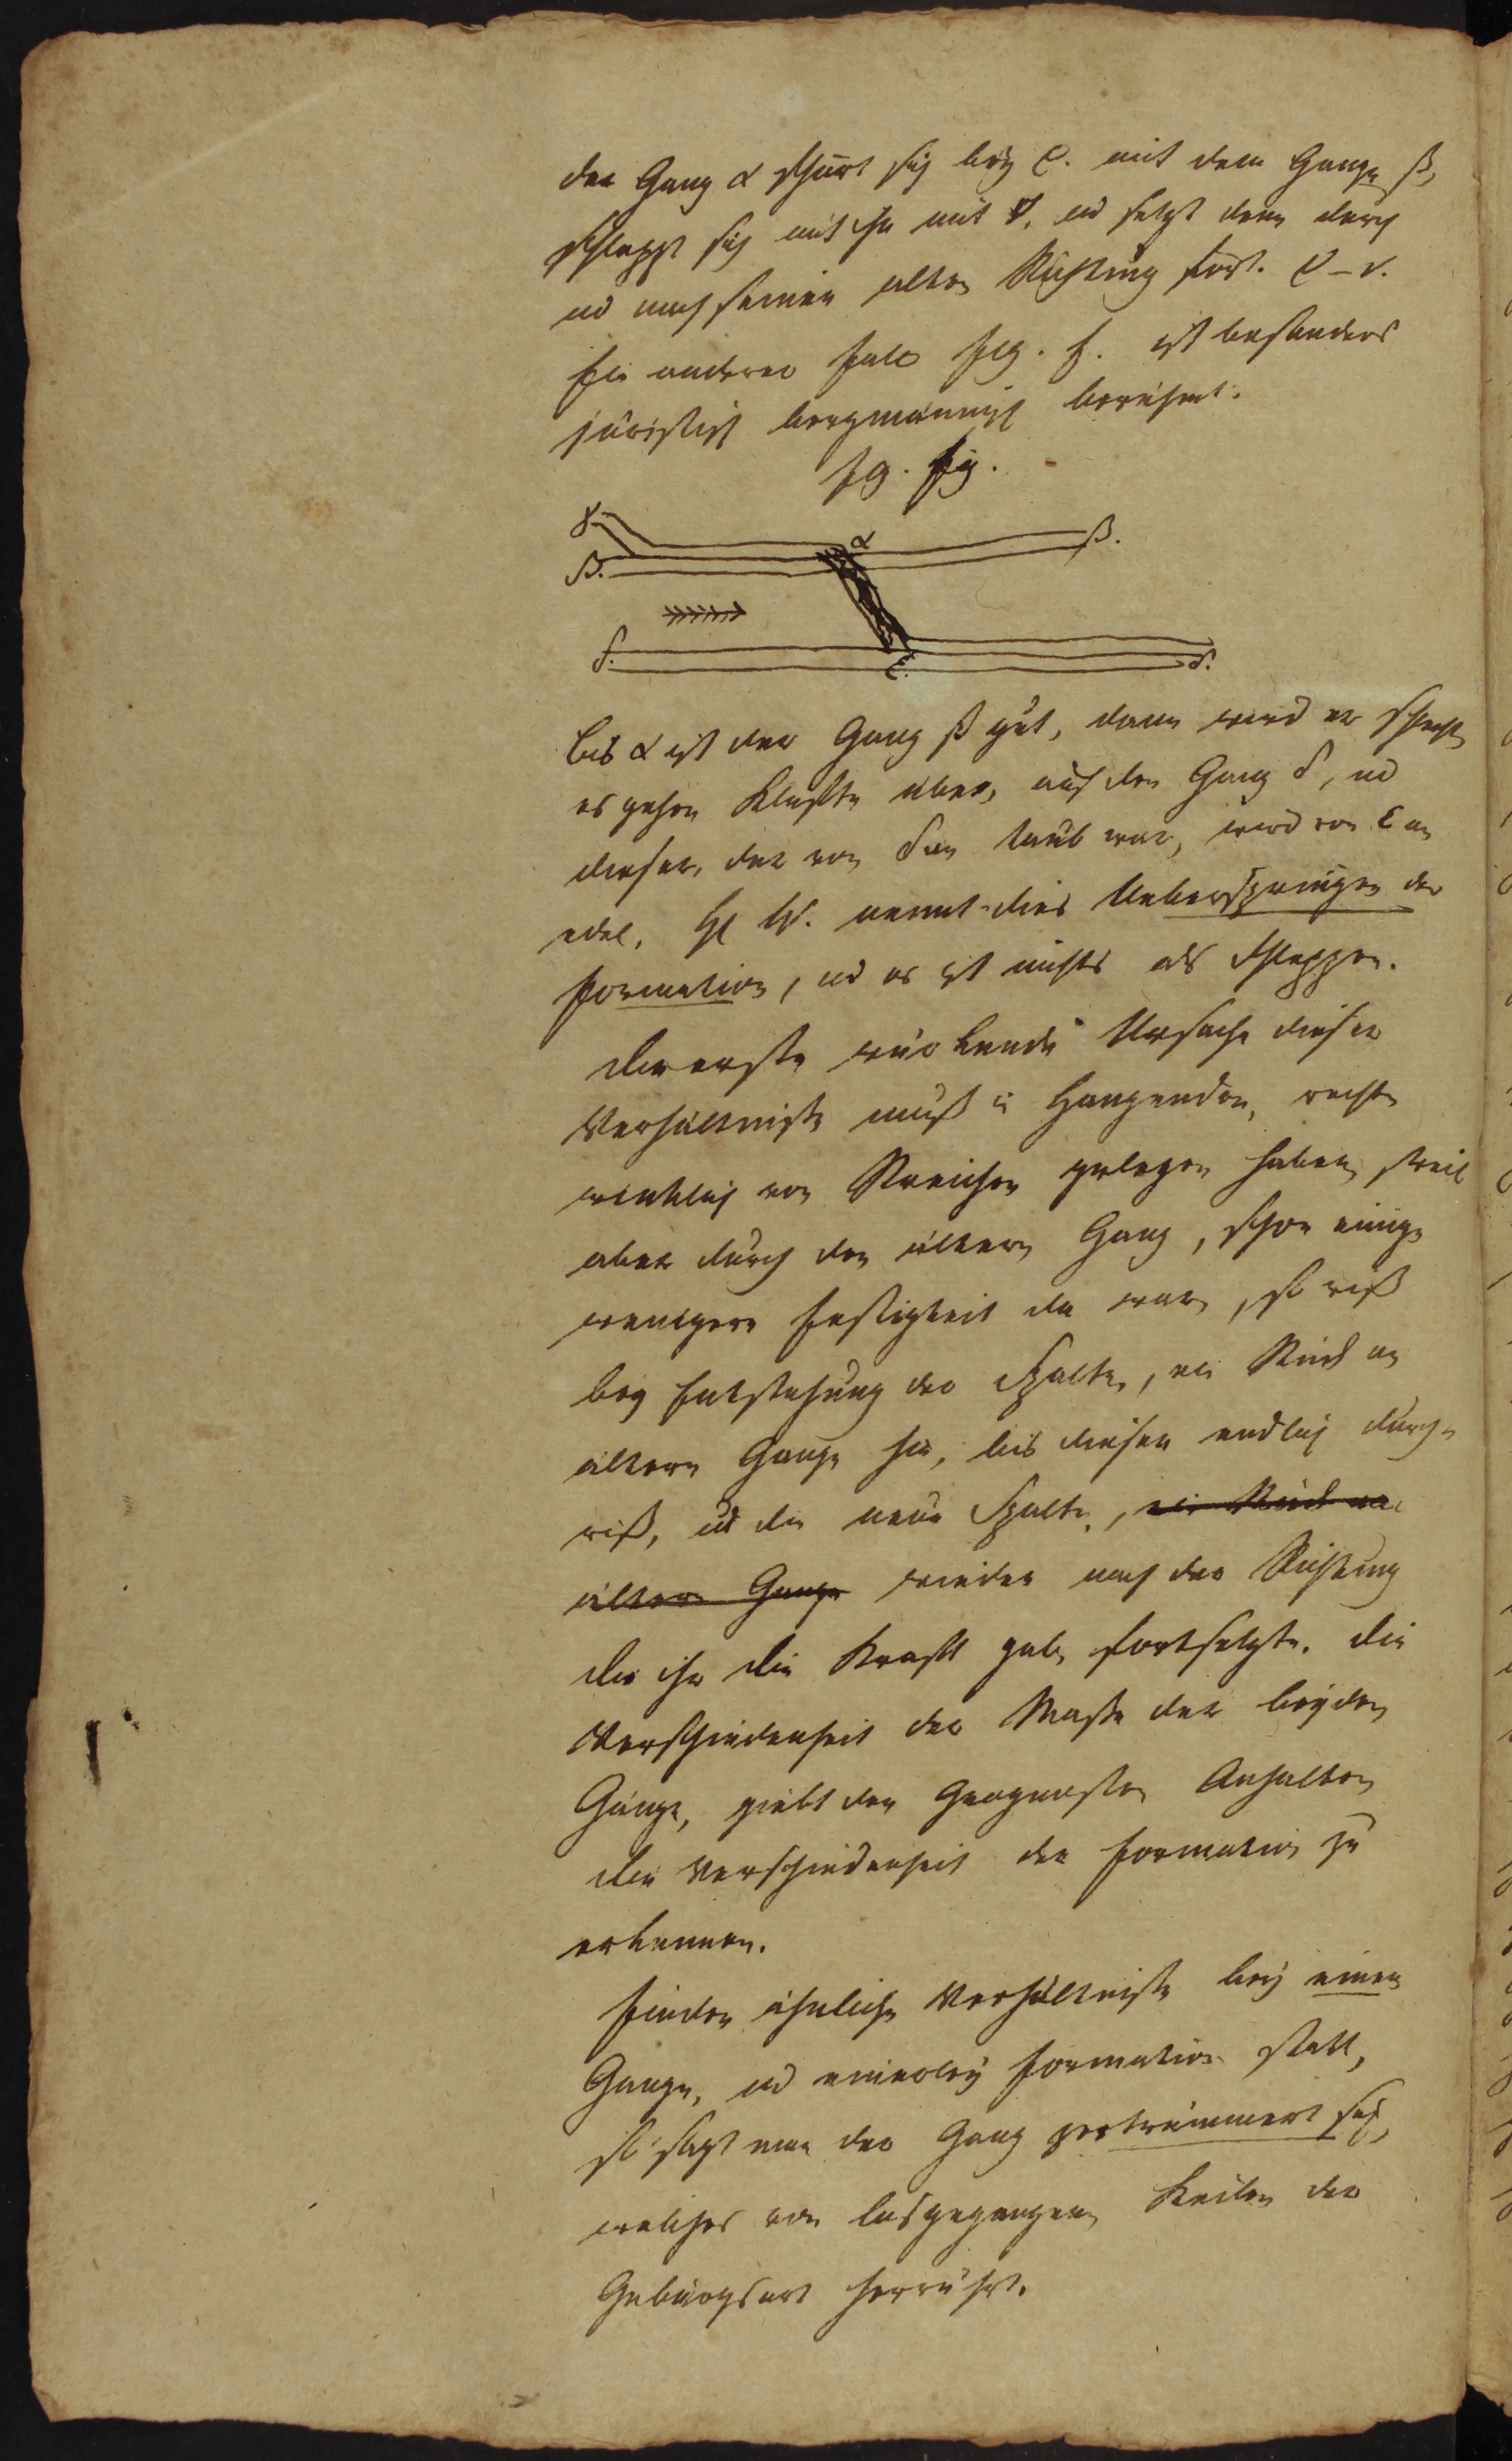 der Gang α schart sich bey C. mit dem Gange β,
schleppt sich mit ihm mit γ, und setzt dann durch
und nach seiner alten Richtung fort. C – γ.
Ein anderer Fall fig. f. ist besonders
juristisch bergmännisch berühmt.
fg. fig.
γ α β.
β.
δ. ε. δ.
Bis α ist der Gang β gut, dann wird er schlecht
es gehen Klüfte über, auf den Gang δ, und
dieser, der von δ an taub war, wird von ε an
edel. H W. nennt dies Ueberspringen der
Formation, und es ist nichts als Schleppen.
Die erste wirkende Ursache dieser
Verhältniße muß in Hangenden, recht
winklich vom Streichen gelegen haben, weil
aber durch den ältern Gang, schon einige
wenigere Festigkeit da war, so riß
bey Entstehung der Spalte, ein Stück am
ältern Gange hin, bis dieser endlich durch-
riß, und die neue Spalte, ein Stück am
ältern Gange wieder nach der Richtung
die ihr die Kraft gab, fortsetzte. Die
Verschiedenheit der Maße der beyden
Gänge, giebt den Geognosten Anhalten
die Verschiedenheit der Formation zu
erkennen.
Finden ähnliche Verhältniße bey einem
Gange, und einerley Formation statt,
so sagt man der Gang zertrümmert sich,
welches von losgegangenen Keilen der
Gebürgsart herrührt.